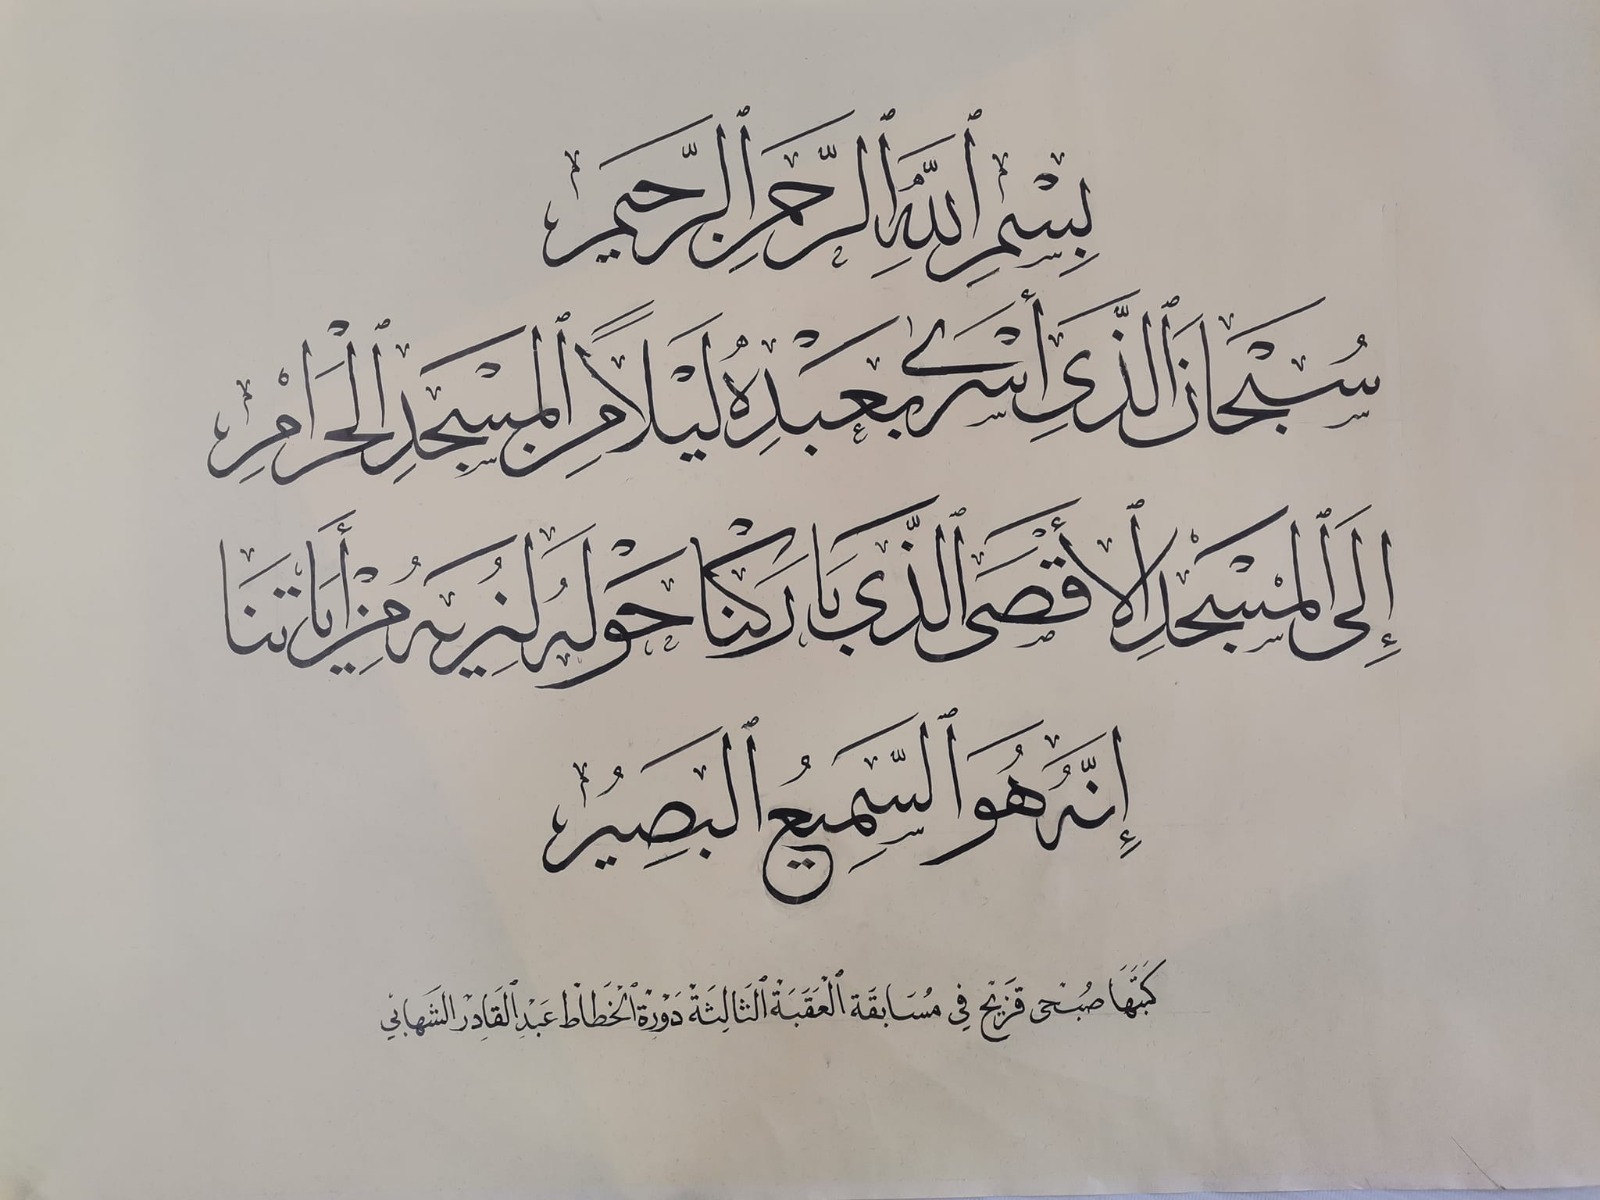 بِسْمِ ٱللَّهِ ٱلرَّحْمَنِ ٱلرَّحِيمِ
سُبْحَانَ ٱلَّذِي أَسْرَى بِعَبْدِهِ لَيْلًا مِنَ ٱلْمَسْجِدِ ٱلْحَرَامِ
إِلَى ٱلْمَسْجِدِ ٱلْأَقْصَى ٱلَّذِي بَارَكْنَا حَوْلَهُ لِنُرِيَهُ مِنْ أَيَاتِنَا
إِنَّهُ هُوَ ٱلسَّمِيعُ ٱلْبَصِيرُ
كَتَبَهَا صُبْحِي قَزِيْح فِي مُسَابَقَة ٱلْعَقَبَة ٱلثَالِثَة دَوْرَة ٱلْخَطَاط عَبْدِ ٱلْقَادِر الشَهَابِي